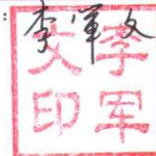 : 李军文
李军
文印